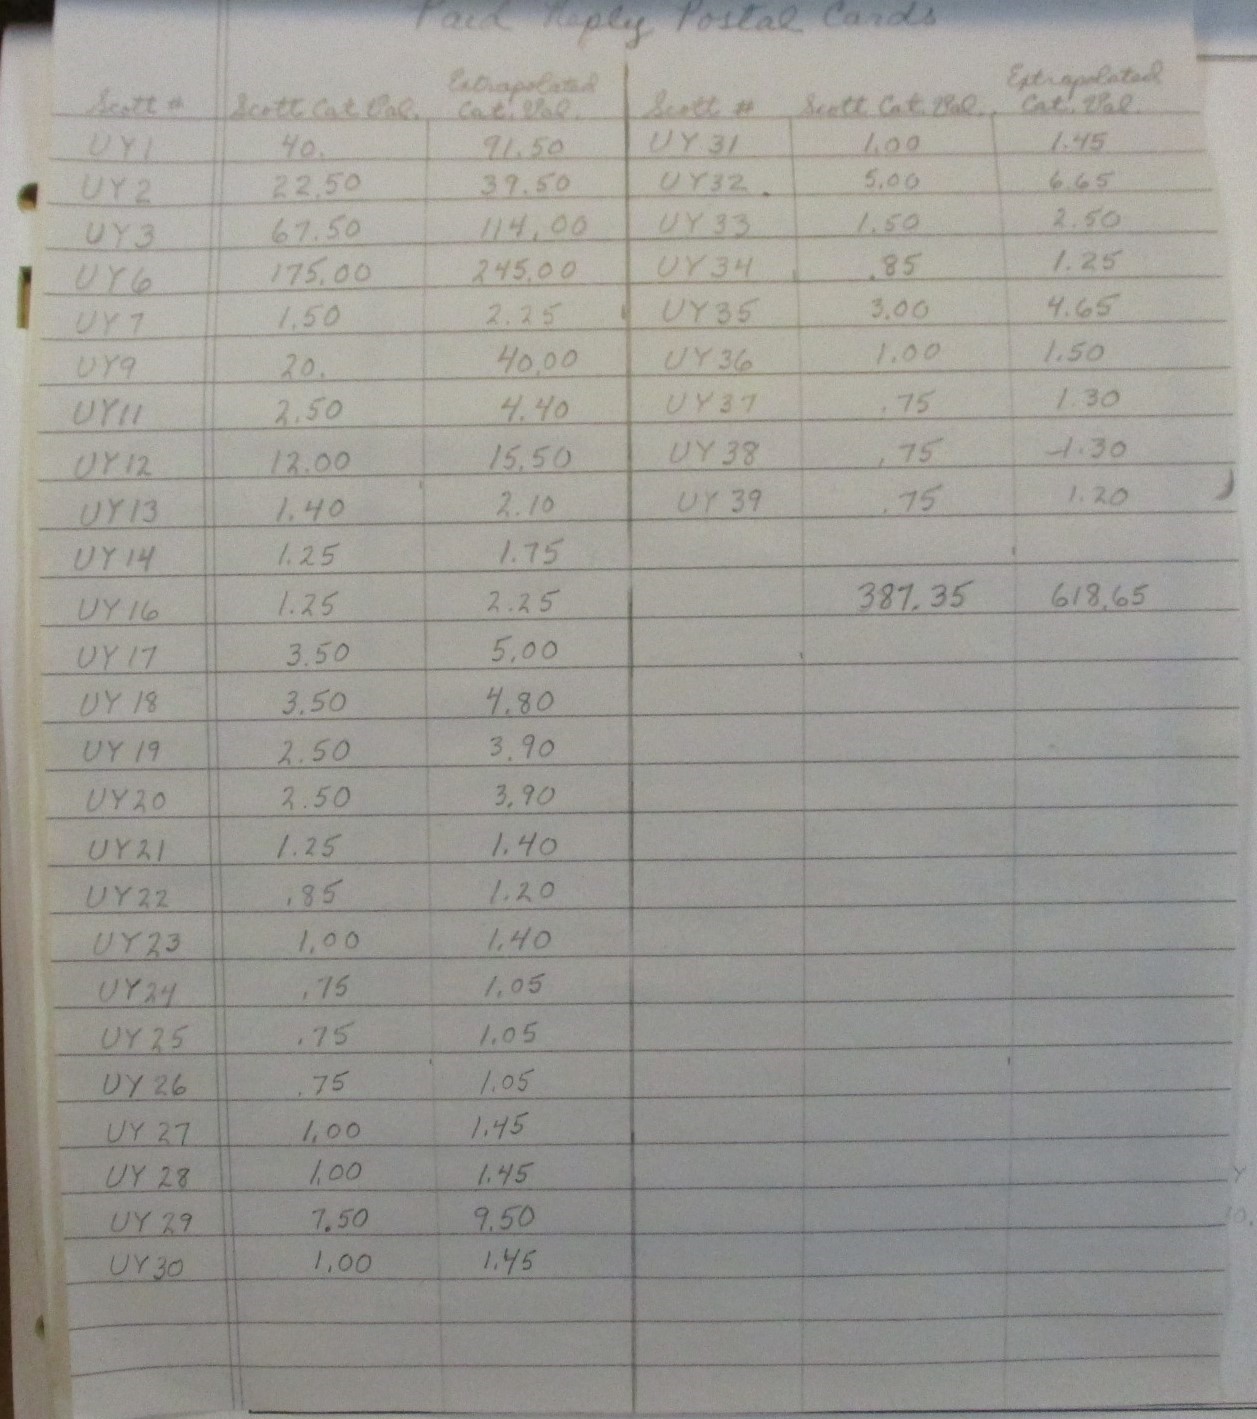 Paid Reply Postal Cards
Scott # Scott Cat. Val. Extrapolated Cat. Val. Scott # Scott Cat. Val. Extrapolated Cat. Val.
UY1 40. 91.50 UY31 1.00 1.45
UY2 22.50 39.50 UY32 5.00 6.65
UY3 67.50 114.00 UY33 1.50 2.50
UY6 175.00 245.00 UY34 .85 1.25
UY7 1.50 2.25 UY35 3.00 4.65
UY9 20. 40.00 UY36 1.00 1.50
UY11 2.50 4.40 UY37 .75 1.30
UY12 12.00 15.50 UY38 .75 1.30
UY13 1.40 2.10 UY39 .75 1.20
UY14 1.25 1.75
UY16 1.25 2.25 387.35 618.65
UY17 3.50 5.00
UY18 3.50 4.80
UY19 2.50 3.90
UY20 2.50 3.90
UY21 1.25 1.40
UY22 .85 1.20
UY23 1.00 1.40
UY24 .75 1.05
UY25 .75 1.05
UY26 .75 1.05
UY27 1.00 1.45
UY28 1.00 1.45
UY29 7.50 9.50
UY30 1.00 1.45